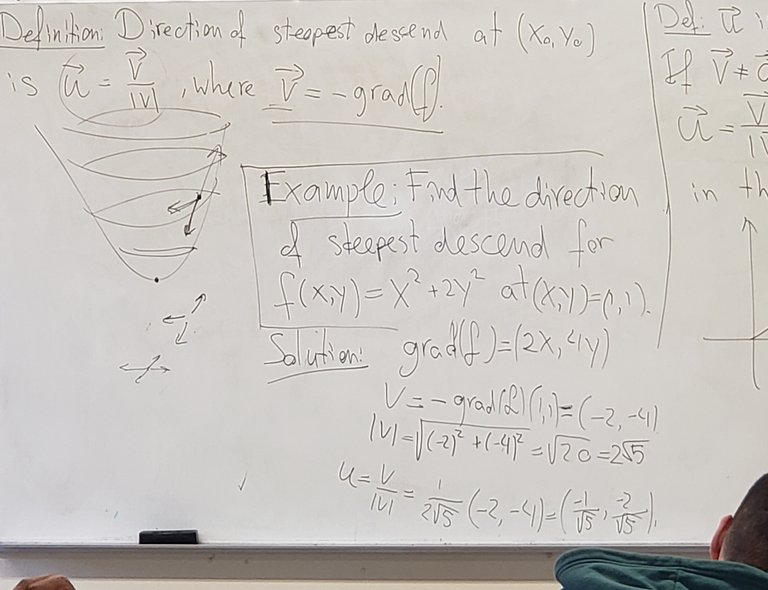 Definition: Direction of steepest descend at (x₀, y₀)
is u⃗ = v⃗/|v|, where v⃗ = -grad(f).
Example: Find the direction
of steepest descend for
f(x,y) = x² + 2y² at (x,y)=(1,1).
Solution: grad(f)=(2x,4y)
V = - grad(f)(1,1)=(-2,-4)
|V|=√((-2)²+(-4)²)=√20=2√5
u=V/|V|=1/(2√5) (-2,-4)=(-1/√5, -2/√5).
Def: u⃗ i
If v⃗ ≠
u⃗ = v⃗/
in th